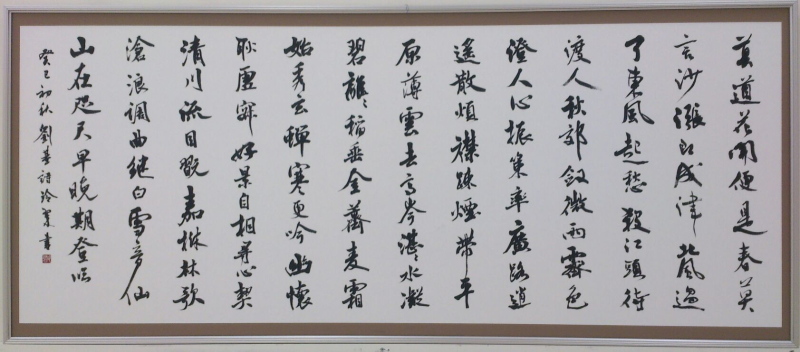 莫道花開便是春莫
言沙漲即成津北風過
了東風起愁殺江頭待
渡人秋郊欲微雨霽色
澄人心振策率廣路逍
遙散煩襟疎煙帶平
原薄雲去高岑湛湛水凝
碧離離稻垂金薺麥霜
始秀玄蟬寒更吟幽懷
耿虛寂好景自相尋心契
清川流目翫嘉樹林歌
滄浪調曲繼白雪音仙
山在咫尺早晚期登臨
癸巳初秋劉基詩玲書